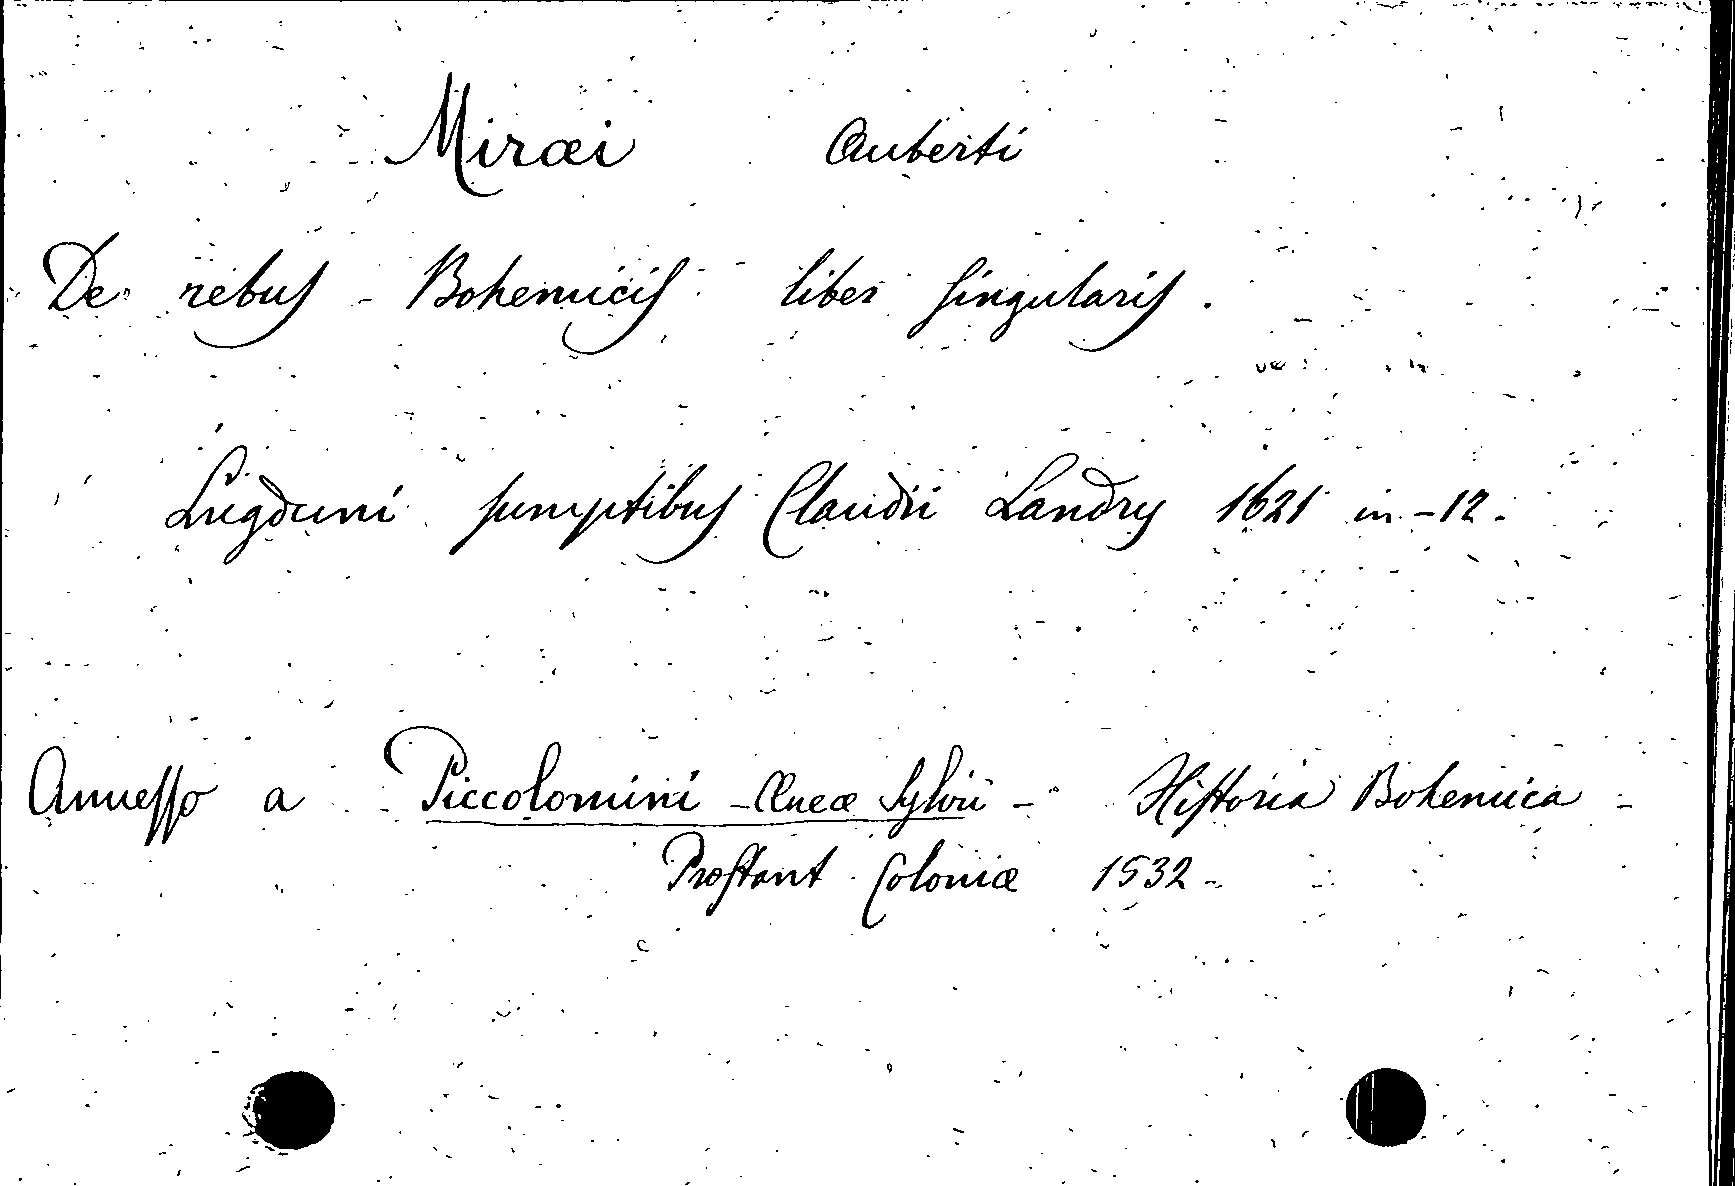 Miræi Auberti
De rebus Bohemicis liber singularis.
Lugduni sumptibus Claudii Landry 1621 in-12.
Annesso a Piccolomini - Æneæ Sylvii - Historia Bohemica -
Prostant Coloniæ 1532 -